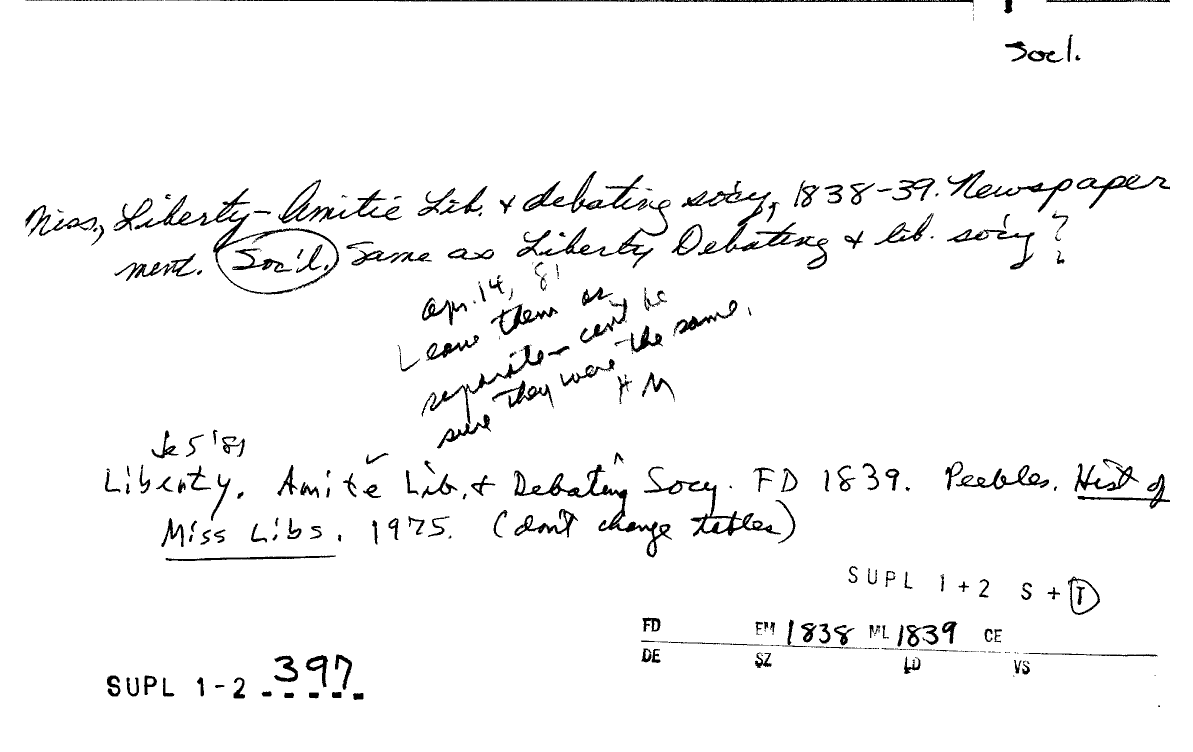 Socl.
Miss., Liberty - Amitie Lib. + debating so'cy, 1838-39. Newspaper
ment. Soc'l. Same as Liberty Debating + lib. so'cy?
Apr. 14, 81
Leave them as
separate - can't be
sure they were the same.
HM
Je 5 '81
Liberty. Amité Lib. + Debating Socy. FD 1839. Peebles. Hist of
Miss Libs. 1975. (don't change tables)
SUPL 1+2 S + T
FD EM 1838 ML 1839 CE
DE SZ LD VS
SUPL 1-2 397